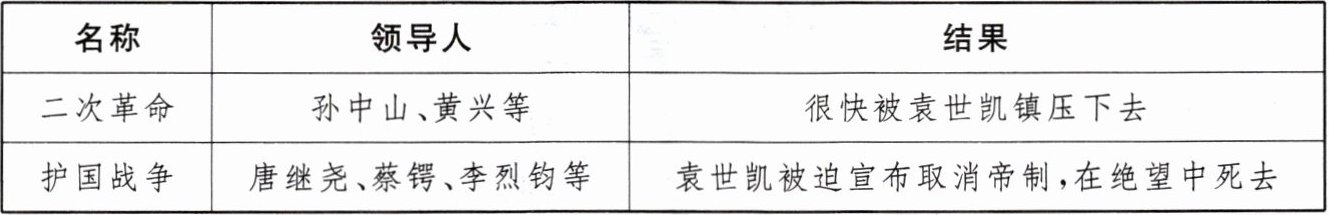 名称 领导人 结果
二次革命 孙中山、黄兴等 很快被袁世凯镇压下去
护国战争 唐继尧、蔡锷、李烈钧等 袁世凯被迫宣布取消帝制,在绝望中死去